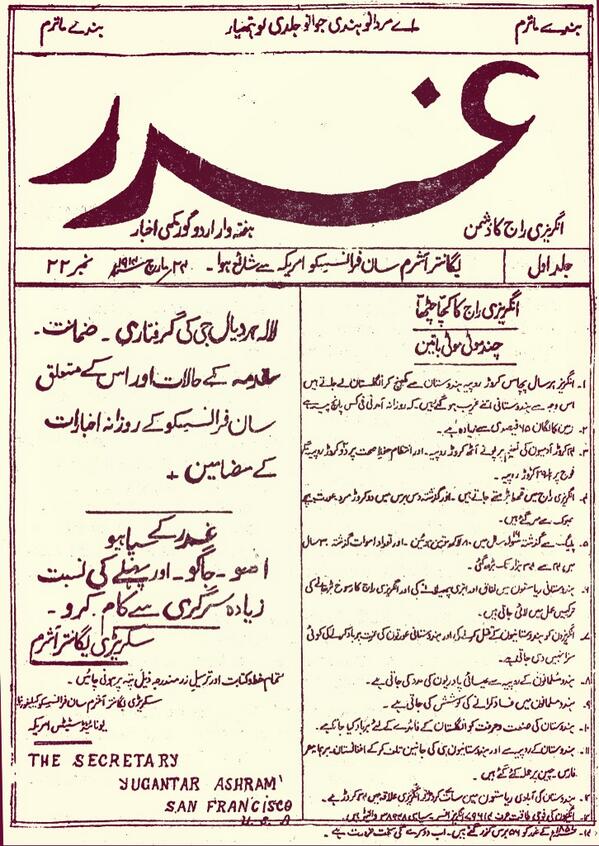 بندے ماترم
اے مردانو ہندی جوانو جلدی لو ہتھیار
بندے ماترم
غدر
انگریزی راج کا دشمن
ہفتہ وار اردو گورمکھی اخبار
جلد اول
یگانتر آشرم سان فرانسیسکو امریکہ سے شائع ہوا - ۲۴ مارچ ۱۹۱۴
نمبر ۲۲
انگریزی راج کا کچا چٹھا
چند موٹی موٹی باتیں
۱- انگریز ہر سال پچاس کروڑ روپیہ ہندوستان سے کھینچ کر انگلستان لے جاتے ہیں
اس وجہ سے ہندوستانی اتنے غریب ہو گئے ہیں کہ روزانہ آمدنی فی کس پانچ پیسے ہے
۲- زمین کا لگان ۶۵ فیصدی سے زیادہ ہے -
۳- ۲۴ کروڑ آدمیوں کی تعلیم پر پونے آٹھ کروڑ روپیہ - اور انتظام حفظ صحت پر دو کروڑ روپیہ مگر
فوج پر ۲۹½ کروڑ روپیہ -
۴- انگریزی راج میں قحط بڑھتے جاتے ہیں - اور گذشتہ دس برس میں دو کروڑ مرد عورت بچے
بھوک سے مر گئے ہیں -
۵- پلیگ سے گذشتہ سولہ سال میں ۸۰ لاکھ موتیں ہوئیں - اور تعداد اموات گذشتہ ۳۰ سال
میں ۲۴ سے ۳۴ ہزار تک بڑھ گئی
۶- ہندوستانی ریاستوں میں نفاق اور ابتری پھیلانے کی اور انگریزی راج کا رسوخ بڑھانے کی
ترکیبیں عمل میں لائی جاتی ہیں -
۷- انگریزوں کو ہندوستانیوں کے قتل کرنے کی اور ہندوستانی عورتوں کی عزت برباد کرنے کی کوئی
سزا نہیں دی جاتی ہے -
۸- ہندو مسلمانوں کے روپیہ سے عیسائی پادریوں کی مدد کی جاتی ہے -
۹- ہندو مسلمانوں میں فساد کرانے کی کوشش کی جاتی ہے -
۱۰- ہندوستان کی صنعت و حرفت کو انگلستان کے فائدے کے لئے برباد کیا جا چکا ہے -
۱۱- ہندوستان کے روپیہ سے اور ہندوستانیوں ہی کی جانیں تلف کر کے افغانستان برہما مصر
فارس چین پر حملہ کئے گئے ہیں -
۱۲- ہندوستان کی آبادی ریاستوں میں سات کروڑ اور انگریزی علاقہ میں ۲۴ کروڑ ہے -
۱۴- ۱۸۵۷ کے غدر کو ۵۶ برس گذر گئے ہیں - اب دوسرے کی سخت ضرورت ہے -
لالہ ہردیال جی کی گرفتاری - ضمانت -
مقدمہ کے حالات اور اس کے متعلق
سان فرانسیسکو کے روزانہ اخبارات
کے مضامین +
غدر کے سپاہیو
اٹھو - جاگو - اور پہلے کی نسبت
زیادہ سرگرمی سے کام کرو -
سکریٹری یگانتر آشرم
تمام خط و کتابت اور ترسیل زر مندرجہ ذیل پتہ پر ہونی چاہئیں -
سکریٹری یگانتر آشرم سان فرانسیسکو کیلیفورنیا
یونائیٹڈ سٹیٹس امریکہ
THE SECRETARY
YUGANTAR ASHRAM
SAN FRANCISCO
U. S. A